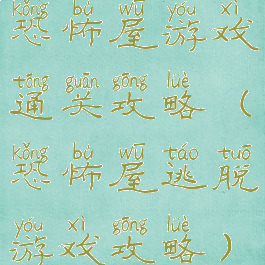 kǒng bù wū yóu xì
恐怖屋游戏
tōng guān gōng lüè
通关攻略（
kǒng bù wū táo tuō
恐怖屋逃脱
yóu xì gōng lüè
游戏攻略）